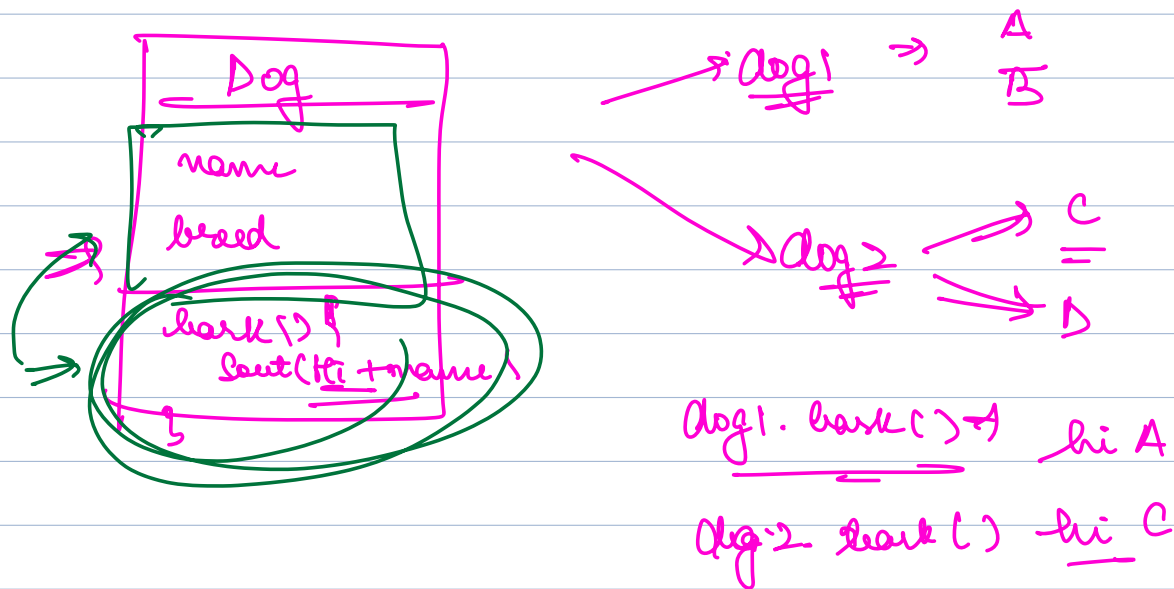 Dog
name
breed
bark() {
Sout(Hi + name)
}
dog1 → A
B
dog2 C
D
dog1. bark() → hi A
dog2 bark() → hi C